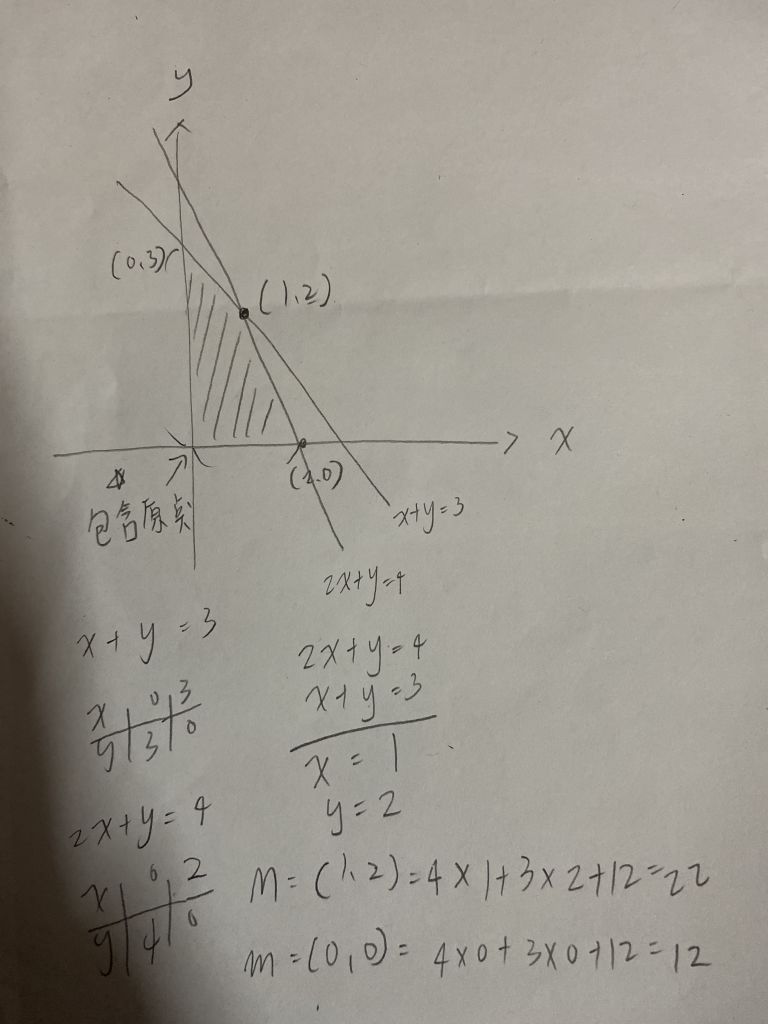 y
(0,3)
(1,2).
x
(2,0)
包含原点
x+y=3
2x+y=4
x+y=3
x 0 3
y 3 0
2x+y=4
x+y=3
x=1
y=2
2x+y=4
x 0 2
y 4 0
M=(1,2)=4×1+3×2+12=22
m=(0,0)=4×0+3×0+12=12